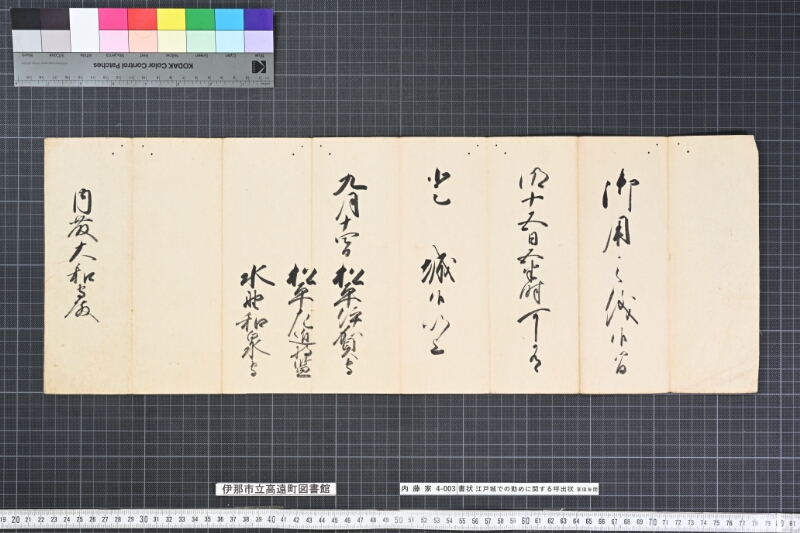 御用之儀候間
明十五日五半時可有
登 城候以上
九月十四日 松平伊賀守
松平左近将監
水野和泉守
内藤大和守殿
伊那市立高遠町図書館
内藤家 4-003 書状 江戸城での勤めに関する呼出状
KODAK Color Control Patches